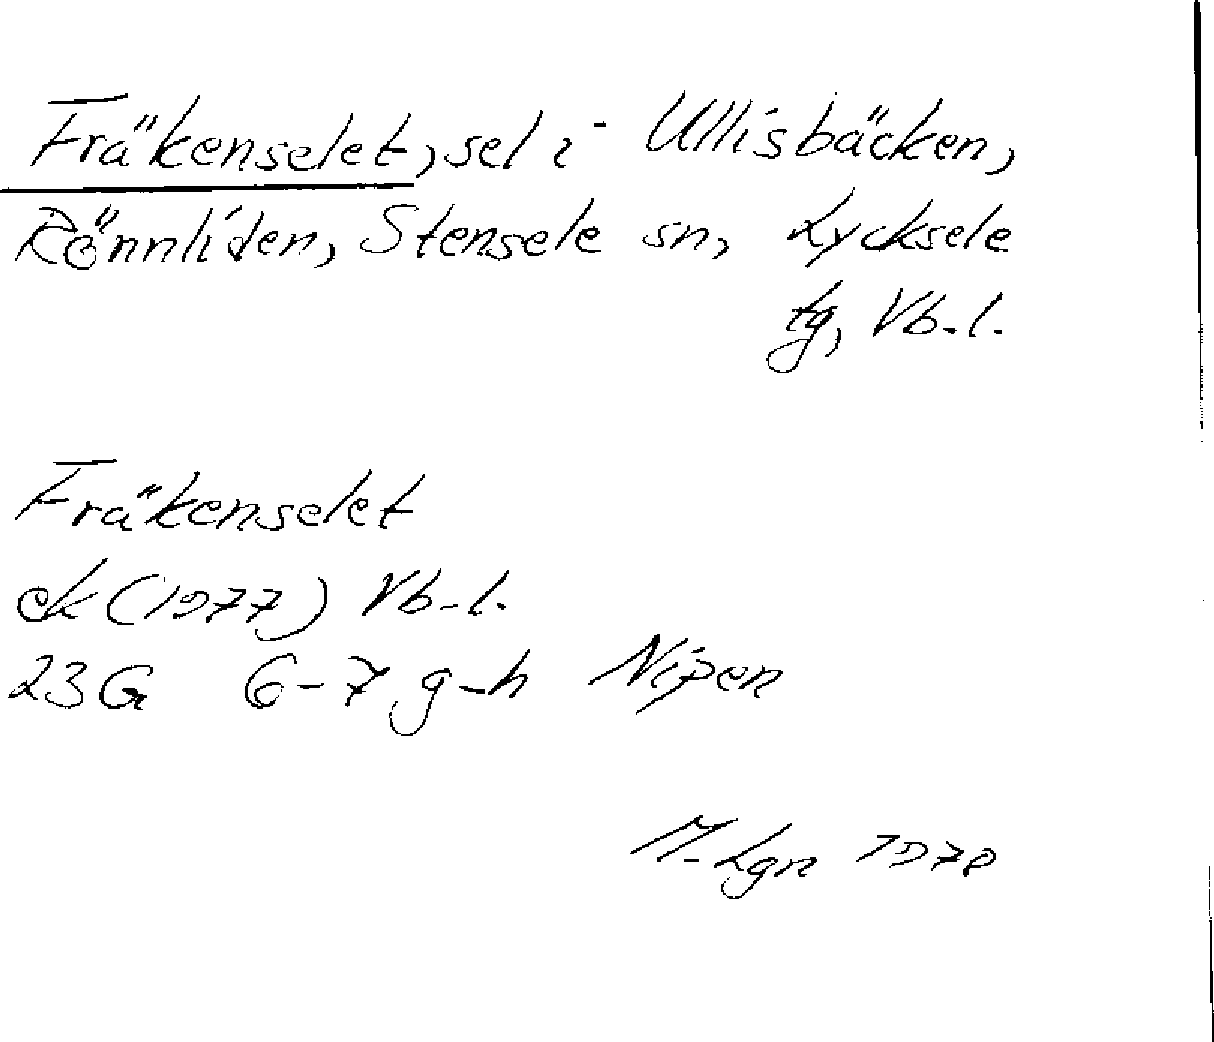 Fräkenselet, sel i Ullisbäcken,
Rönnliden, Stensele sn, Lycksele
tg, Vb-l.
Fräkenselet
ek (1977) Vb-l.
23G 6-7 g-h Nipen
M-Lgn 1978